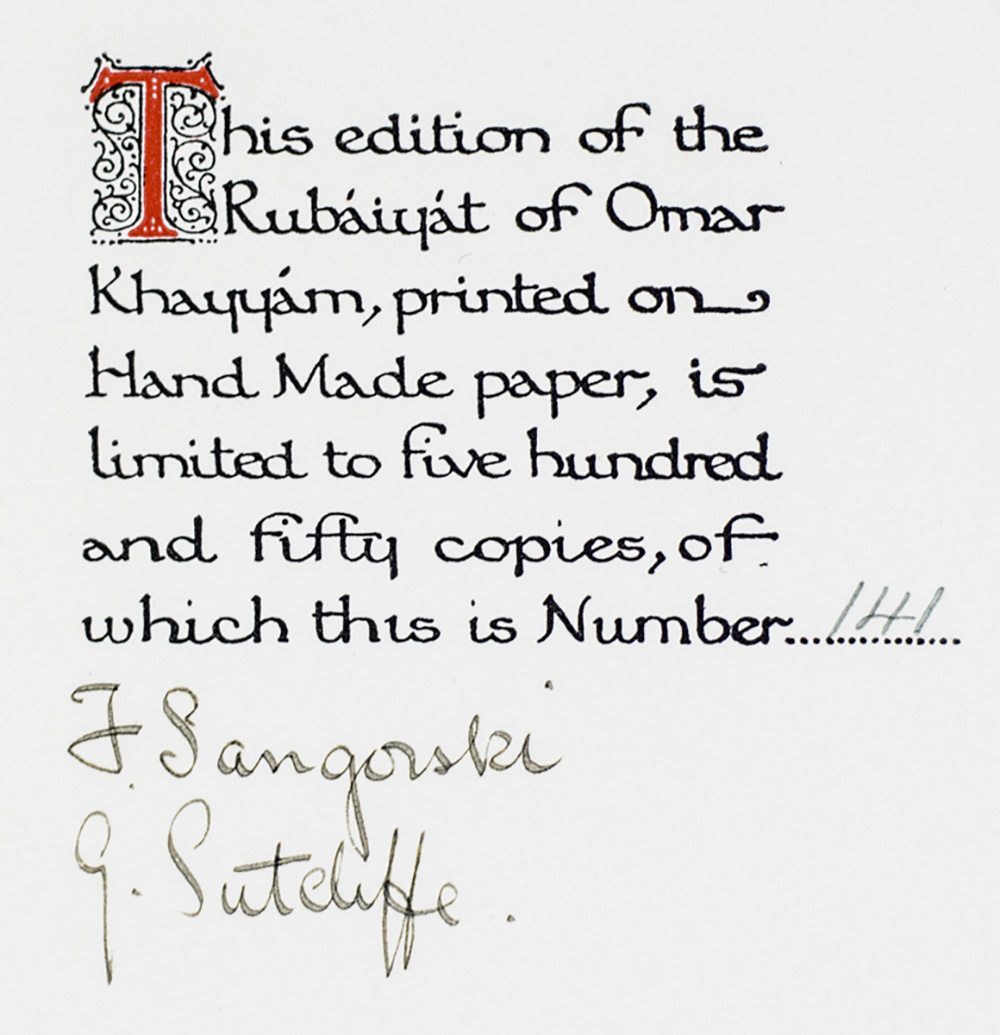 This edition of the
Rubáiyát of Omar
Khayyám, printed on
Hand Made paper, is
limited to five hundred
and fifty copies, of
which this is Number...141...
F. Sangorski
G. Sutcliffe.